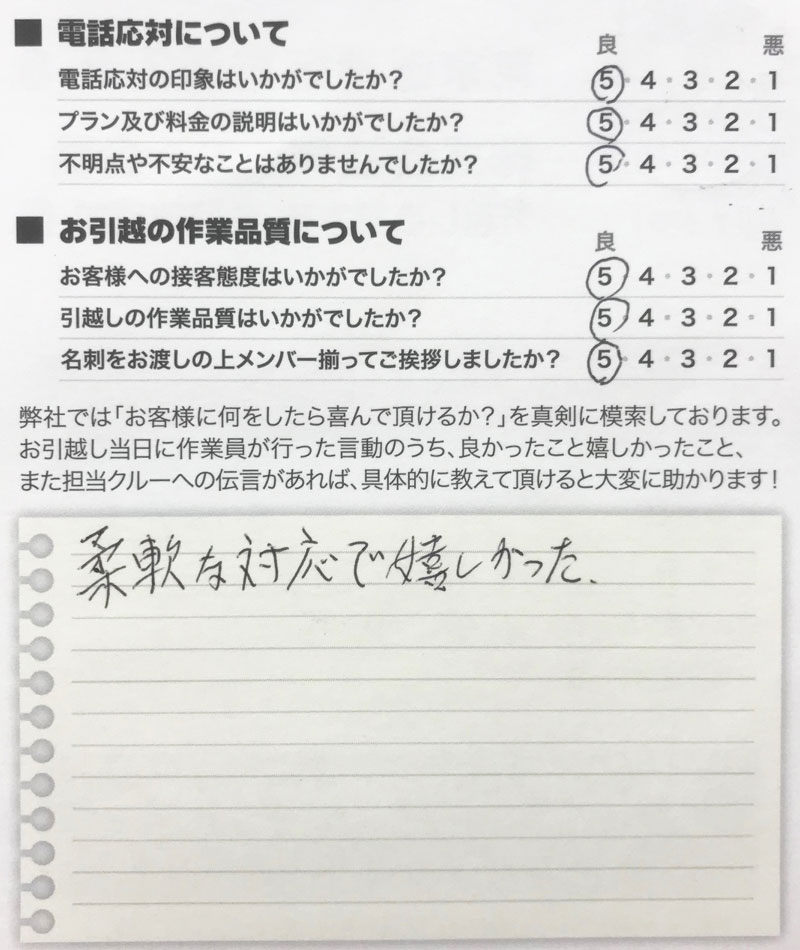 ■ 電話応対について
良 悪
電話応対の印象はいかがでしたか? 5・4・3・2・1
プラン及び料金の説明はいかがでしたか? 5・4・3・2・1
不明点や不安なことはありませんでしたか? 5・4・3・2・1
■ お引越の作業品質について
良 悪
お客様への接客態度はいかがでしたか? 5・4・3・2・1
引越しの作業品質はいかがでしたか? 5・4・3・2・1
名刺をお渡しの上メンバー揃ってご挨拶しましたか? 5・4・3・2・1
弊社では「お客様に何をしたら喜んで頂けるか?」を真剣に模索しております。
お引越し当日に作業員が行った言動のうち、良かったこと嬉しかったこと、
また担当クルーへの伝言があれば、具体的に教えて頂けると大変に助かります!
柔軟な対応で嬉しかった.